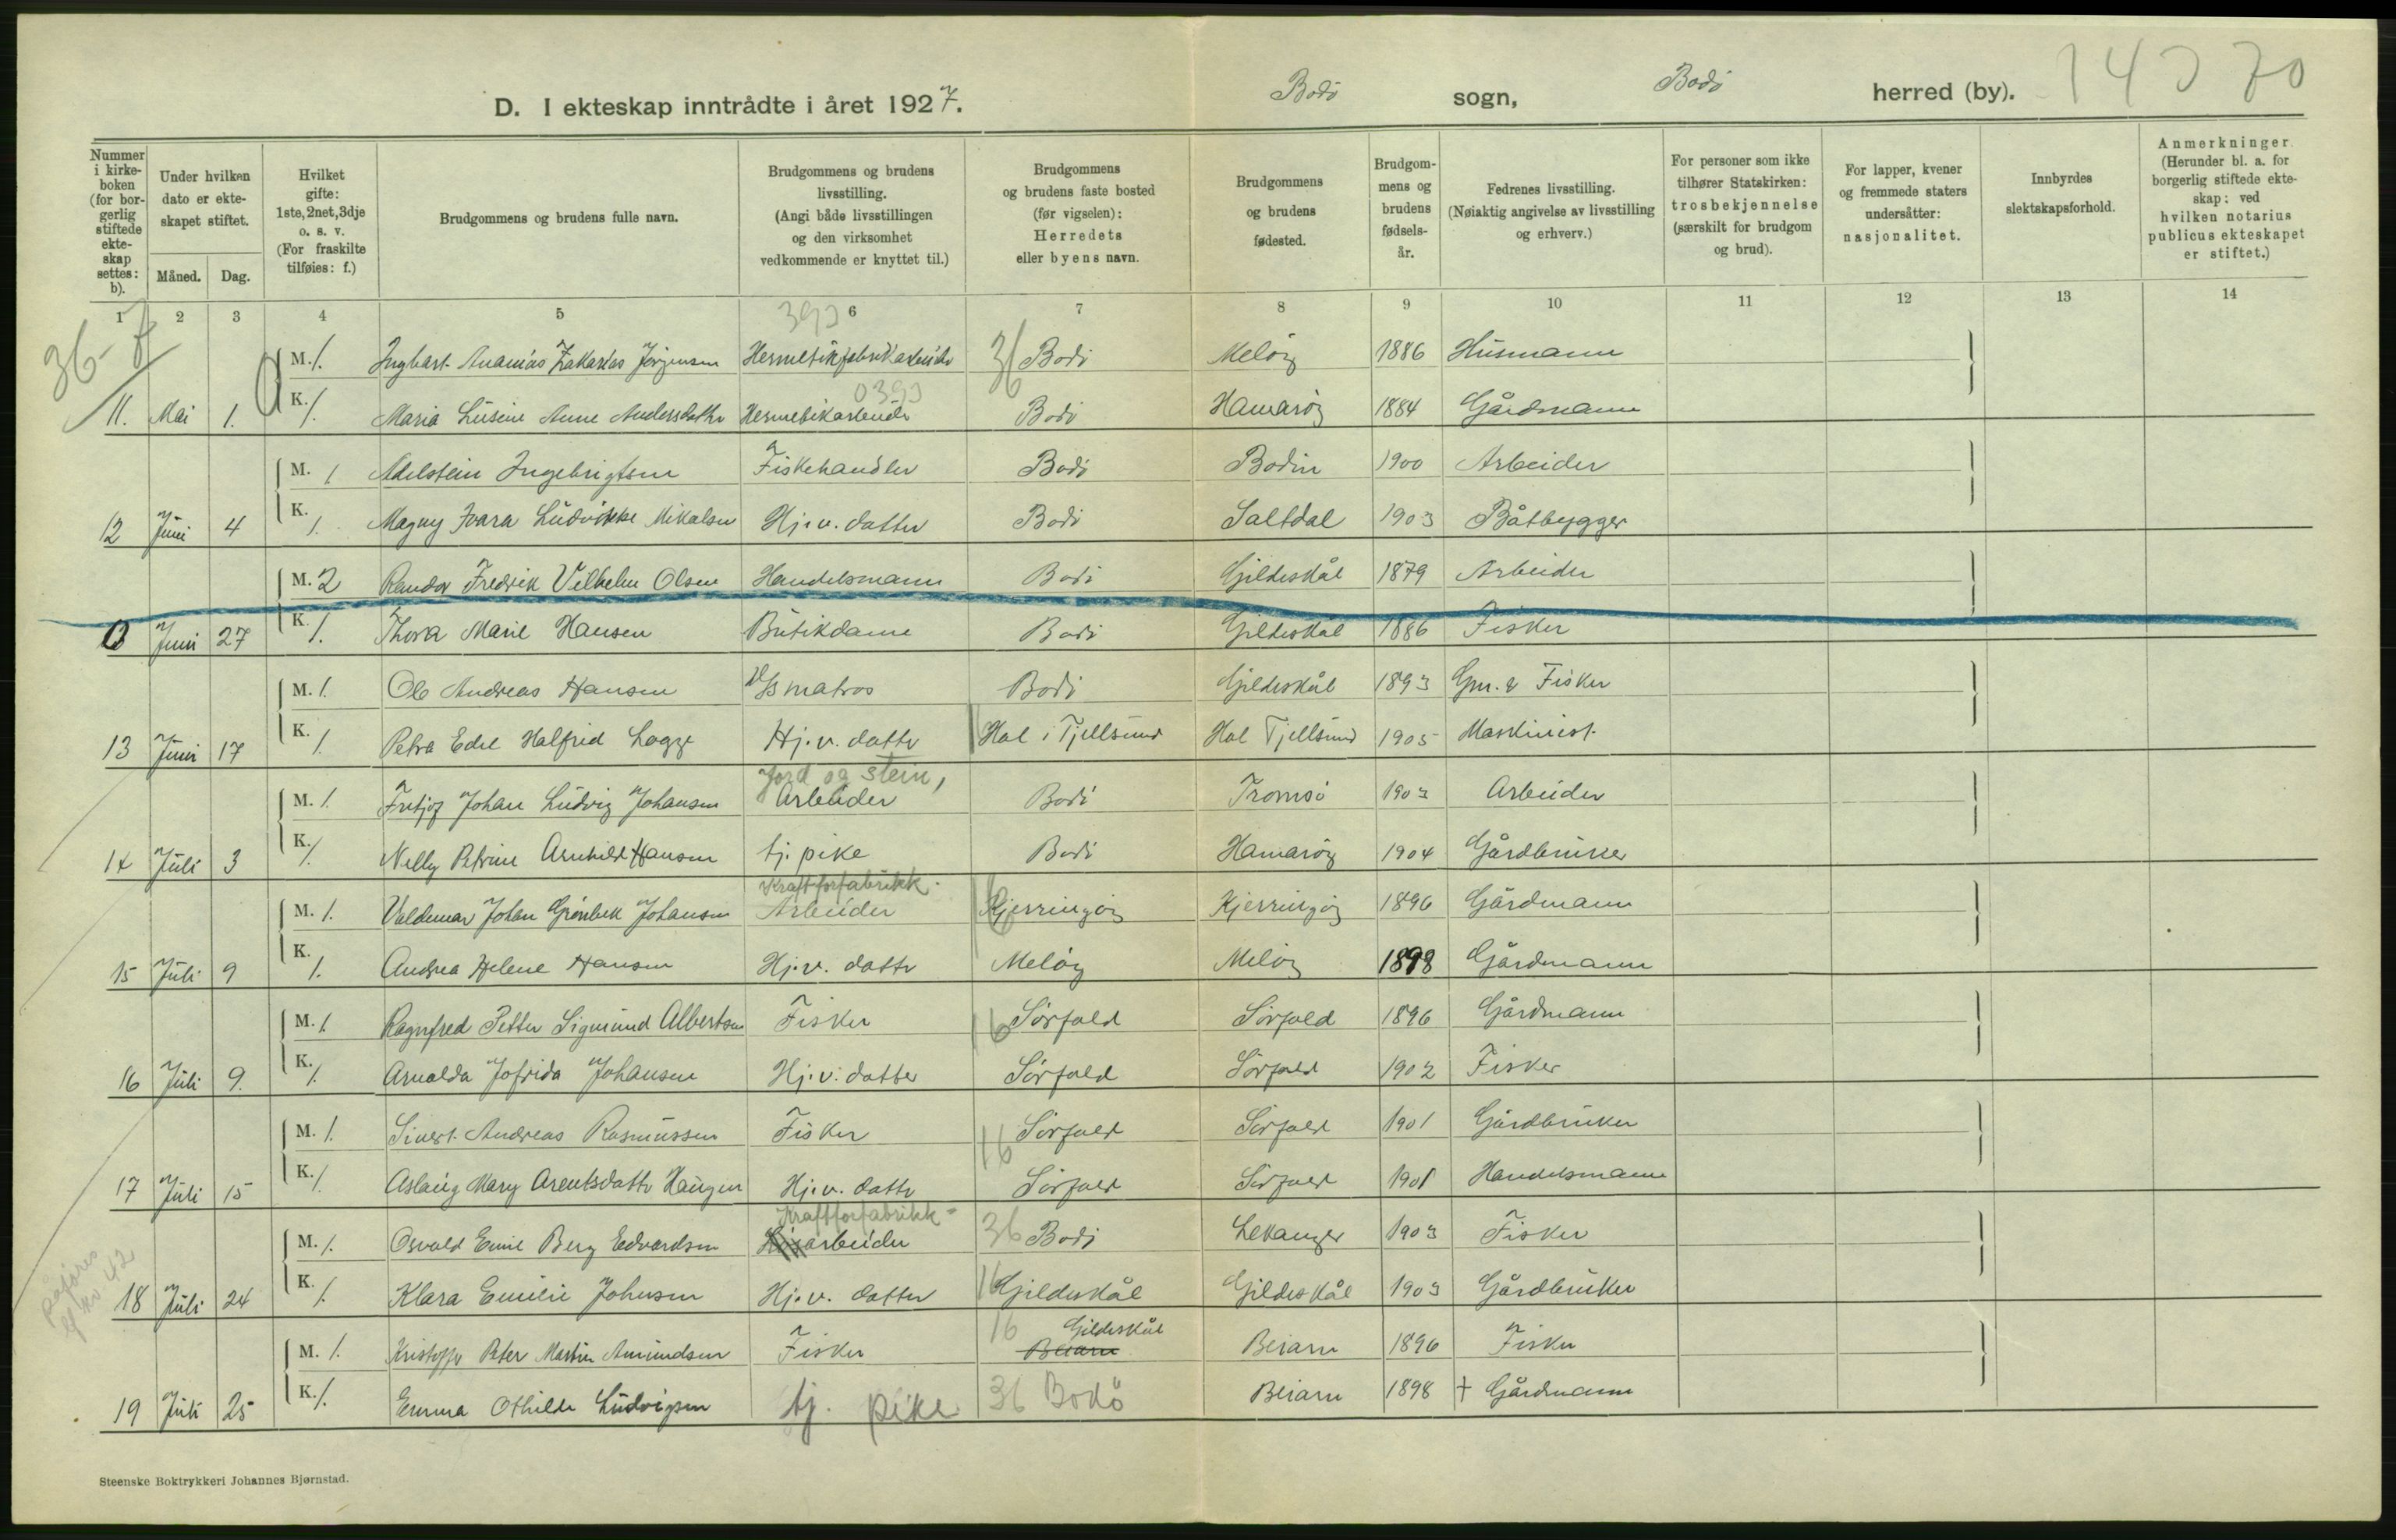 D. I ekteskap inntrådte i året 1927. Bodö sogn, Bodö herred (by). 14370
Nummer i kirkeboken (for borgerlig stiftede ekteskap settes: b).
Under hvilken dato er ekteskapet stiftet.
Måned. Dag.
Hvilket gifte: 1ste, 2net, 3dje o. s. v. (For fraskilte tilføies: f.)
Brudgommens og brudens fulle navn.
Brudgommens og brudens livsstilling. (Angi både livsstillingen og den virksomhet vedkommende er knyttet til.)
Brudgommens og brudens faste bosted (før vigselen): Herredets eller byens navn.
Brudgommens og brudens fødested.
Brudgommens og brudens fødselsår.
Fedrenes livsstilling. (Nøiaktig angivelse av livsstilling og erhverv.)
For personer som ikke tilhører Statskirken: trosbekjennelse (særskilt for brudgom og brud).
For lapper, kvener og fremmede staters undersåtter: nasjonalitet.
Innbyrdes slektskapsforhold.
Anmerkninger. (Herunder bl. a. for borgerlig stiftede ekteskap: ved hvilken notarius publicus ekteskapet er stiftet.)
1 2 3 4 5 6 7 8 9 10 11 12 13 14
36-7
393
M. 1. Ingbart Ananias Zakarias Jörgensen Hermetikfabrikarbeider 36 Bodö Melöy 1886 Husmann
0393
11. Mai 1. K. 1. Maria Lusine Anne Andersdatter Hermetikarbeider Bodö Hamaröy 1884 Gårdmann
M. 1 Adelstein Ingebrigtsen Fiskehandler Bodö Bodin 1900 Arbeider
12 Juni 4 K. 1. Magny Ivara Ludvikke Mikalsen Hj.v. datter Bodö Saltdal 1903 Båtbygger
M. 2 Randor Fredrik Vilhelm Olsen Handelsmann Bodö Gildeskål 1879 Arbeider
Juni 27 K. 1. Thora Marie Hansen Butikdame Bodö Gildeskål 1886 Fisker
M. 1. Ole Andreas Hansen D/s matros Bodö Gildeskål 1893 Gm. & Fisker
13 Juni 17 K. 1. Petra Edel Halfrid Logge Hj.v. datter Hol i Tjellsund Hol Tjellsund 1905 Maskinist
Jord og stein,
M. 1. Fritjof Johan Ludvig Johansen Arbeider Bodö Tromsö 1903 Arbeider
14 Juli 3 K. 1. Nelly Petrine Arnhild Hansen tj. pike Bodö Hamaröy 1904 Gårdbruker
Kraftforfabrikk-
M. 1. Valdemar Johan Grönbek Johansen Arbeider 16 Kjerringöy Kjerringöy 1896 Gårdmann
15 Juli 9 K. 1. Andrea Helene Hansen Hj.v. datter Melöy Melöy 1898 Gårdmann
M. 1. Ragnfred Petter Sigmund Albertsen Fisker 16 Sörfold Sörfold 1896 Gårdmann
16 Juli 9. K. 1. Arnolda Jofrida Johansen Hj.v. datter Sörfold Sörfold 1902 Fisker
M. 1. Sivert Andreas Rasmussen Fisker 16 Sörfold Sörfold 1901 Gårdbruker
17 Juli 15 K. 1. Aslaug Mary Arentsdatter Haugen Hj.v. datter Sörfold Sörfold 1901 Handelsmann
Kraftforfabrikk-
M. 1. Osvald Emil Berg Edvardsen arbeider 36 Bodö Lekanger 1903 Fisker
påföres
42
18 Juli 24 K. 1. Klara Emilie Johnsen Hj.v. datter 16 Gildeskål Gildeskål 1903 Gårdbruker
16 Gildeskål
M. 1. Kristoffer Peter Martin Amundsen Fisker Beiarn Beiarn 1896 Fisker
19 Juli 25 K. 1. Emma Othilde Ludvigsen tj. pike 36 Bodö Beiarn 1898 + Gårdmann
Steenske Boktrykkeri Johannes Bjørnstad.